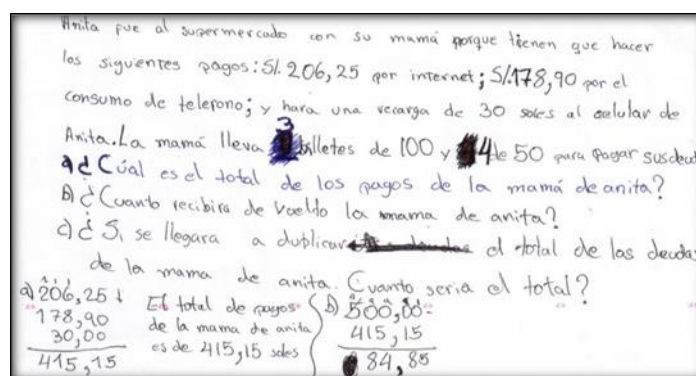 Anita fue al supermercado con su mamá porque tienen que hacer
los siguientes pagos: S/. 206,25 por internet; S/.178,90 por el
consumo de telefono; y hara una recarga de 30 soles al celular de
Anita. La mamá lleva 3 billetes de 100 y 4 de 50 para pagar sus deu
a) ¿Cúal es el total de los pagos de la mamá de anita?
b) ¿Cuanto recibira de vuelto la mama de anita?
c) ¿ Si se llegara a duplicar el total de las deudas
de la mama de anita. Cuanto seria el total?
a) 206,25 +
178,90
30,00
415,15
El total de pagos
de la mama de anita
es de 415,15 soles
b) 500,00-
415,15
84,85